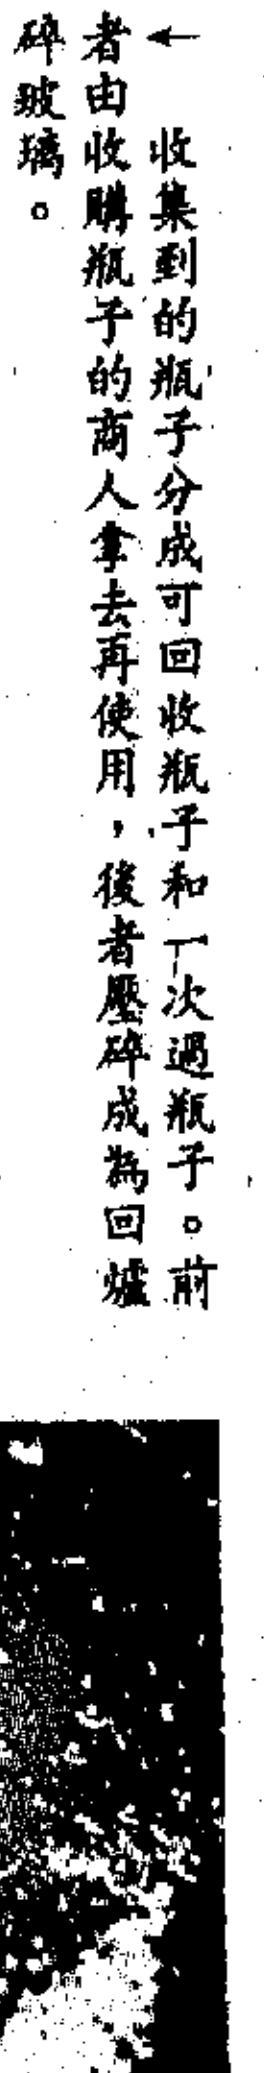 ←　收集到的瓶子分成可回收瓶子和一次過瓶子。前
者由收購瓶子的商人拿去再使用，後者壓碎成為回爐
碎玻璃。